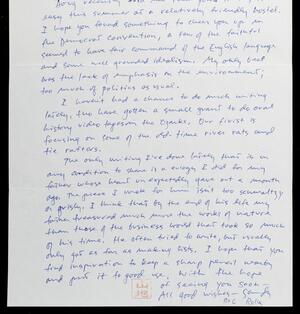 easy this summer at a relatively friendly hostel.
I hope you found something to cheer you up in
the Democrat Convention, a few of the faithful
seemed to have fair command of the English language
and some well grounded idealism. My only beef
was the lack of emphasis on the environment;
too much of politics as usual.
I haven't had a chance to do much writing
lately, tho have gotten a small grant to do oral
history video tapes in the Ozarks. Our first is
focusing on some of the old-time river rats and
tie rafters.
The only writing I've done lately that is in
any condition to share is a eulogy I did for my
father whose heart unexpectedly gave out a month
ago. The piece I wrote for him isn't too
or grisly. I think that by the end of his life my
father treasured much more the works of nature
than those of the business world that took so much
of his time. He often tried to write, but usually
only got as far as making lists. I hope that you
find inspiration to keep a sharp pencil
and put it to good use, with the hope
of seeing you soon.
All good wishes —